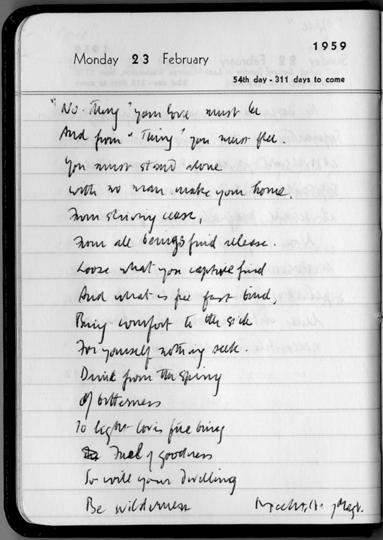 1959
Monday 23 February
54th day - 311 days to come
"No-Thing" your love must be
And from "Thing" you must flee.
You must stand alone
With no man make your home.
From striving cease,
From all beings find release.
Loose what you captive find
And what is free fast bind,
Bring comfort to the sick
For yourself nothing seek.
Drink from the spring
Of bitterness
To light love's fire bring
Fuel of goodness
So will your dwelling
Be wilderness